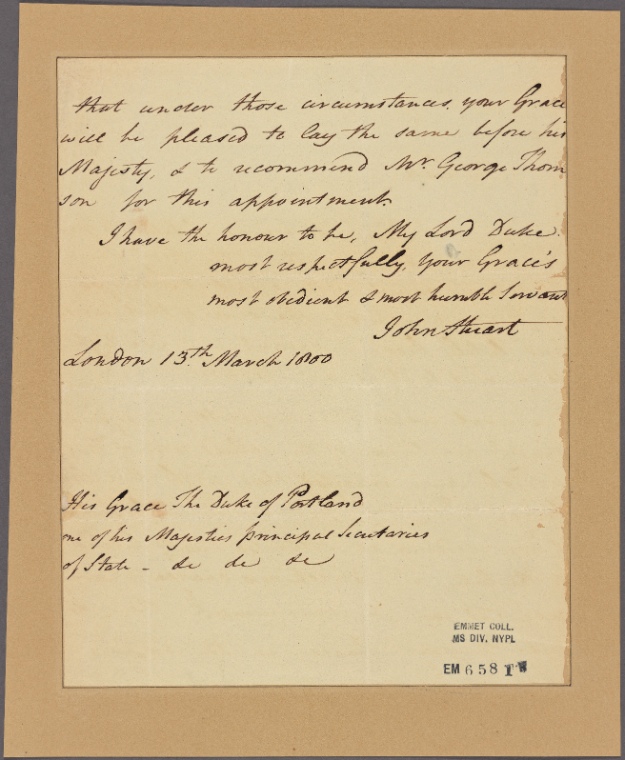 that under those circumstances, your Grace
will be pleased to lay the same before his
Majesty, & to recommend Mr. George Thom
son for this appointment.
I have the honour to be, My Lord Duke
most respectfully, your Grace's
most obedient & most humble Servant
John Stuart
London 13th March 1800
His Grace The Duke of Portland
one of his Majesties principal Secretaries
of State - &c &c &c
EMMET COLL.
MS DIV. NYPL
EM 6581